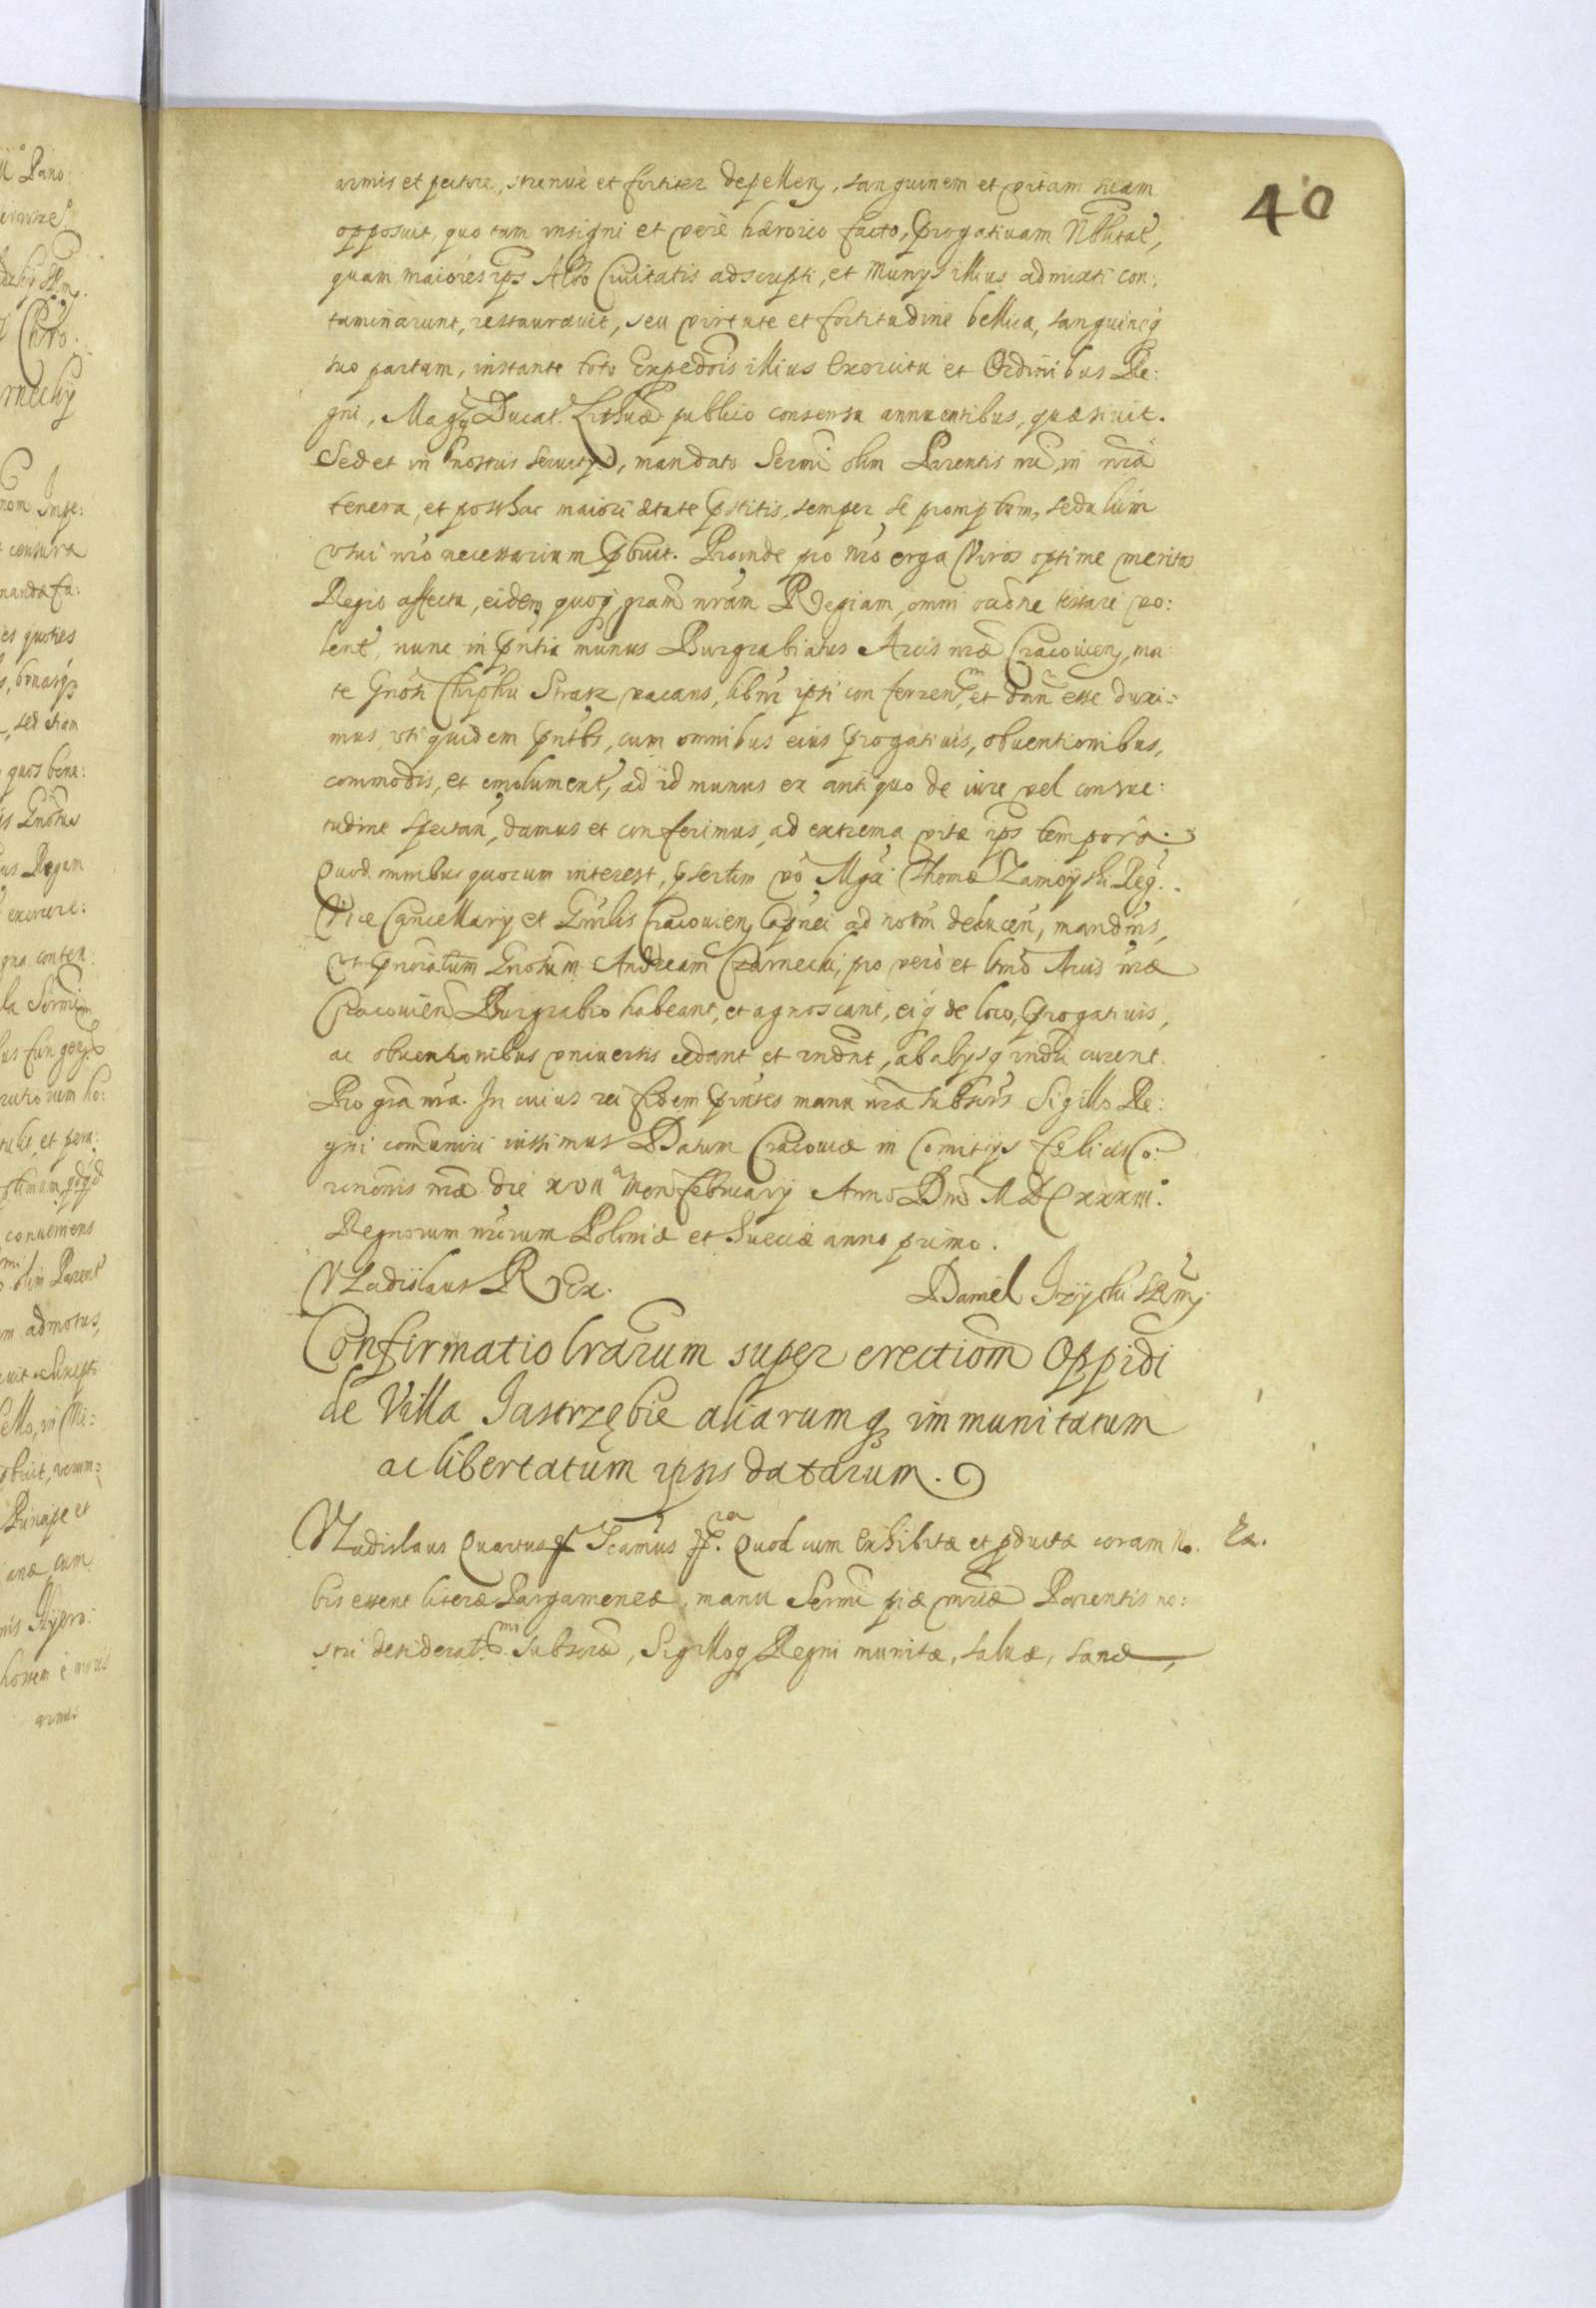 40
armis et pectore, strenuè et fortiter depellen, sanguinem et vitam suam
opposuit, quo tam insigni et verè hæroico facto, progatiuam Nblitat,
quam maiores ips Albo Ciuitatis adscripti, et Munys illius admixti con:
taminarunt, restaurauit, seu virtute et fortitudine bellica, sanguineq
suo partam, instante toto Expedois illius Exercitu et Ordinibus Re:
gni, Magq Ducat Lithuæ publico consensu annuentibus, quæsiuit.
Sed et in nostris seruitys, mandato Sermi olim Parentis nri, in nra
tenera, et posthac maiori ætate pstitis, semper se promptum, sedulum
vsui nro necessarium pbuit. Proinde pro nro erga Viros optime meritos
Regio affectu, eidem quoq gram nram Regiam, omni ocaone testari vo:
lent, nunc in pntia munus Burgrabiatus Arcis nræ Cracouien, mor
te Gnosi Chrphri Strasz vacans, libnr ipsi conferren, et dan esse duxi:
mus, vti quidem pntbs, cum omnibus eius progatiuis, obuentionibus,
commodis, et emolument, ad id munus ex antiquo de iure vel consue:
tudine spectan, damus et conferimus, ad extrema vitæ ips tempora.
Quod omnibus quorum interest, psertim vo Mgci Thomæ Zamoyski Reg.
Vice Cancellarij et Gnrlis Cracouien Capnei ad notm deducen, mandms,
vt pnoiatum Gnosum Andream Czarnecki, pro vero et ltmo Arcis nræ
Cracouien Burgrabio habeant, et agnoscant, eiq de loco, progatiuis,
ac obuentionibus vniuersis cedant et rndnt, ab alysq rndri curent.
Pro gra nra. In cuius rei fidem pntes manu nra subscris Sigillo Re:
gni comuniri iussimus Datum Cracouiæ in Comitijs felicis Co:
ronaonis nræ die XVII a Men February Anno Dni MDCXXXIII.
Regnorum nrorum Poloniæ et Sueciæ anno primo.
Vladislaus Rex.
Daniel
Confirmatio lrarum super erectiom Oppidi
de Villa Jastrzębie aliarumq immunitatum
ac libertatum ipsis datarum.
Vladislaus Quartus Quod cum Exhibitæ et pductæ coram No.
bis essent literæ Pargameneæ, manu Sermi piæ mriæ Parentis no:
stri desideratmi subscræ, Sigilloq Regni munitæ, saluæ, sanæ,